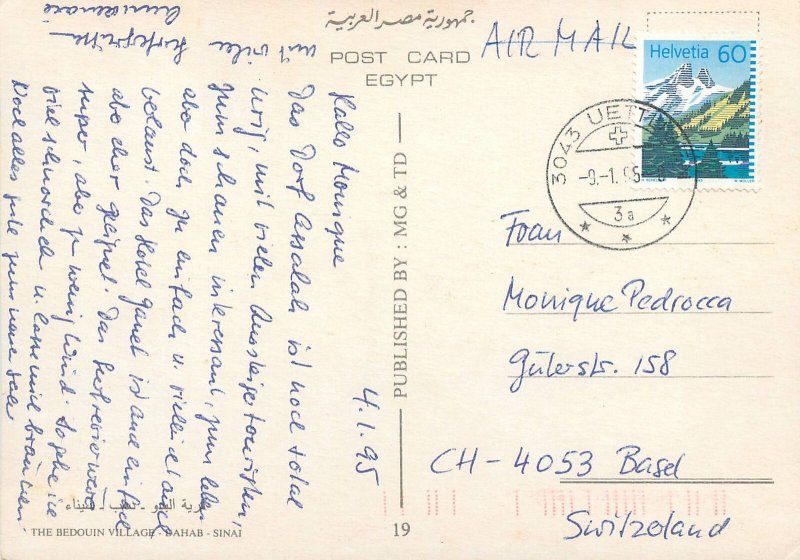 جمهورية مصر العربية
POST CARD
EGYPT
AIR MAIL
Helvetia 60
3043 UETT
-9.-1.95
3a
4.1.95
Hallo Monique
Das Dorf Assalah ist noch total
urig, mit vielen Aussteigertouristen,
zum schauen interessant, zum leben
aber doch zu einfach u. vielleicht auch
Das Hotel ist auch einfach
aber eher Das Surfrevier wäre
super, aber zu wenig Wind. So gehe ich
viel schnorcheln u. lasse mich bräunen.
Noch alles gute zum neuen Jahr
und viele
Surfgrüsse
PUBLISHED BY : MG & TD
Frau
Monique Pedrocca
Güterstr. 158
CH-4053 Basel
Switzerland
قرية البدو - دهب - سيناء
THE BEDOUIN VILLAGE - DAHAB - SINAI
19